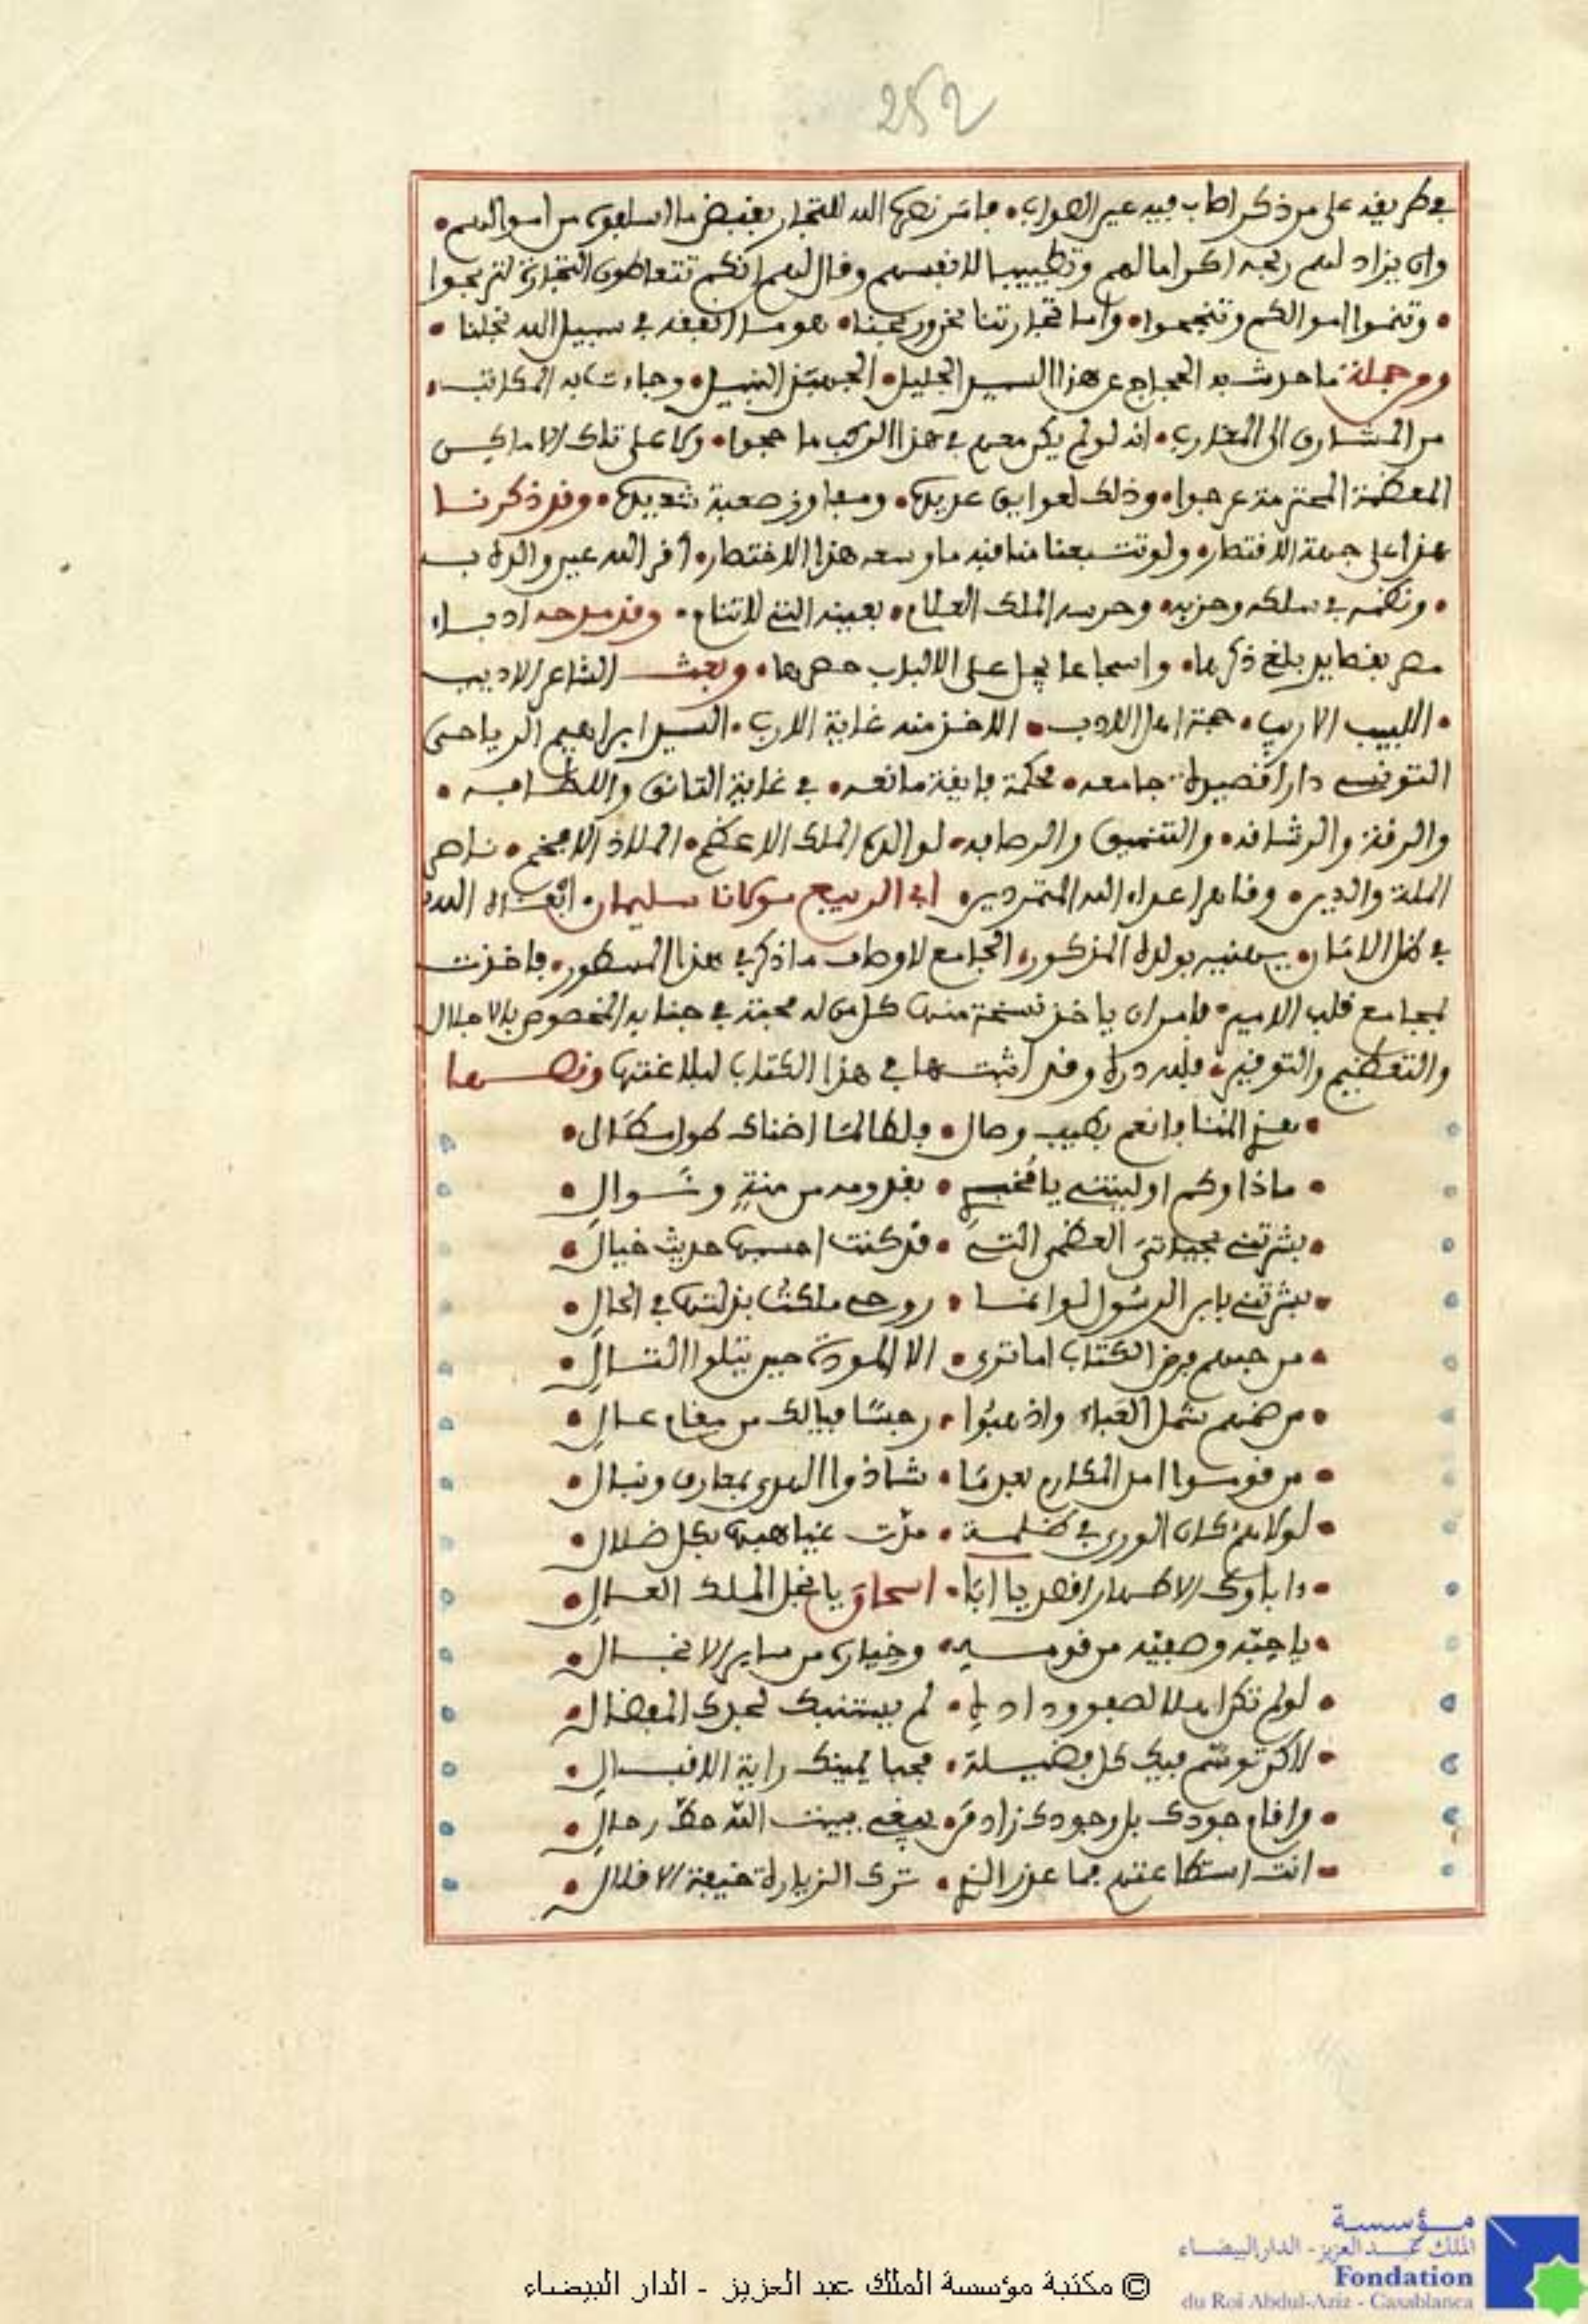 252
في طريقه على من ذكر اصاب فيه عين الصواب • فامر نصره الله للتجار بقبض ما اسلفوه من اموالهم •
وان يزاد لهم ربحه اكراما لهم وتطييبا لانفسهم وقال لهم انكم تتعاطون التجارة لتربحوا
• وتنموا اموالكم وتنجحوا • واما تجارتنا نحن وربحنا • هو ما انفقه في سبيل الله نجلنا •
ومن جملة ما حدث به الحجاج عن هذا السيد الجليل • الجهبذ النبيل • وجاءت به المكاتب •
من المشارق الى المغارب • انه لو لم يكن معهم في هذا الركب ما حجوا • ولا على تلك الاماكن
المعظمة المحترمة عرجوا • وذلك لعوايق عديدة • ومفاوز صعبة شديدة • وقد ذكرنا
هذا على جهة الاقتصار • ولو تتبعنا مناقبه ما وسعه هذا الاختصار • اقر الله عين والده به
• ونظمه في سلكه وحزبه • وحرسه الملك العلام • بعينه التي لا تنام • وقد مدحه ادباء
مصر بقصايد بلغ ذكرها • واسجاعا يجل على الالباب حصرها • وبعث الشاعر الاديب
• اللبيب الاريب • حجة اهل الادب • الاخذ منه غاية الارب • السيد ابراهيم الرياحي
التونسي دارا قصيدة جامعه • محكمة فايقة مانعه • في غاية التانق واللطافه •
والرقة والرشاقه • والتنميق والرصافه • لوالده الملك الاعظم • الملاذ الافخم • ناصر
الملة والدين • وقاهر اعداء الله المتمردين • ابي الربيع مولانا سليمان • ابقاه الله
في ظل الامان • يهنيه بولده المذكور • الجامع لاوصاف ما ذكر في هذا المسطور • فاخذت
بمجامع قلب الامير • فامر ان ياخذ نسخة منها كل من له محبة في جنابه المخصوص بالاجلال
والتعظيم والتوقير • فلله دره وقد اثبتها في هذا الكتاب لبلاغتها ونصها
• هذي المنا فانعم بطيب وصال • فلطالما اضناك طول مطال •
• ماذا وكم اوليتني يا مخبري • بقدومه من منة ونوال •
• بشرتني بحياتي العظمى التي • قد كنت احسبها حديث خيال •
• بشرتني بابن الرسول لو انما • روحي ملكت بذلتها في الحال •
• من حبهم فرض الكتاب اما ترى • الا المودة حين يتلوا التال •
• من ضمهم شمل العباء واذهبوا • رجسا فيالك من مقام عال •
• من قوسوا اهل المكارم بعدما • شاذوا الهدى بمعارف ونبال •
• لولاهم كان الورى في ظلمة • مدت غياهبها بكل ضلال •
• دا باوك الاطهار اقصر يا ابا • اسحاق يا نجل الملك العال •
• يا حبه وصفيه من قومه • وخياره من ساير الانجال •
• لو لم تكن اهلا لصفو وداده • لم يستنبك لحجك المفضال •
• لاكن توسم فيك كل فضيلة • فحبا يمينك راية الاقبال •
• واقام جودك بل وجودك زاد من • يبغي ببيت الله حط رحال •
• انت استطاعتهم فما عذر الذي • ترك الزيارة خيفة الاقلال •
© مكتبة مؤسسة الملك عبد العزيز - الدار البيضاء
مؤسسة
الملك عبد العزيز - الدار البيضاء
Fondation
du Roi Abdul-Aziz - Casablanca